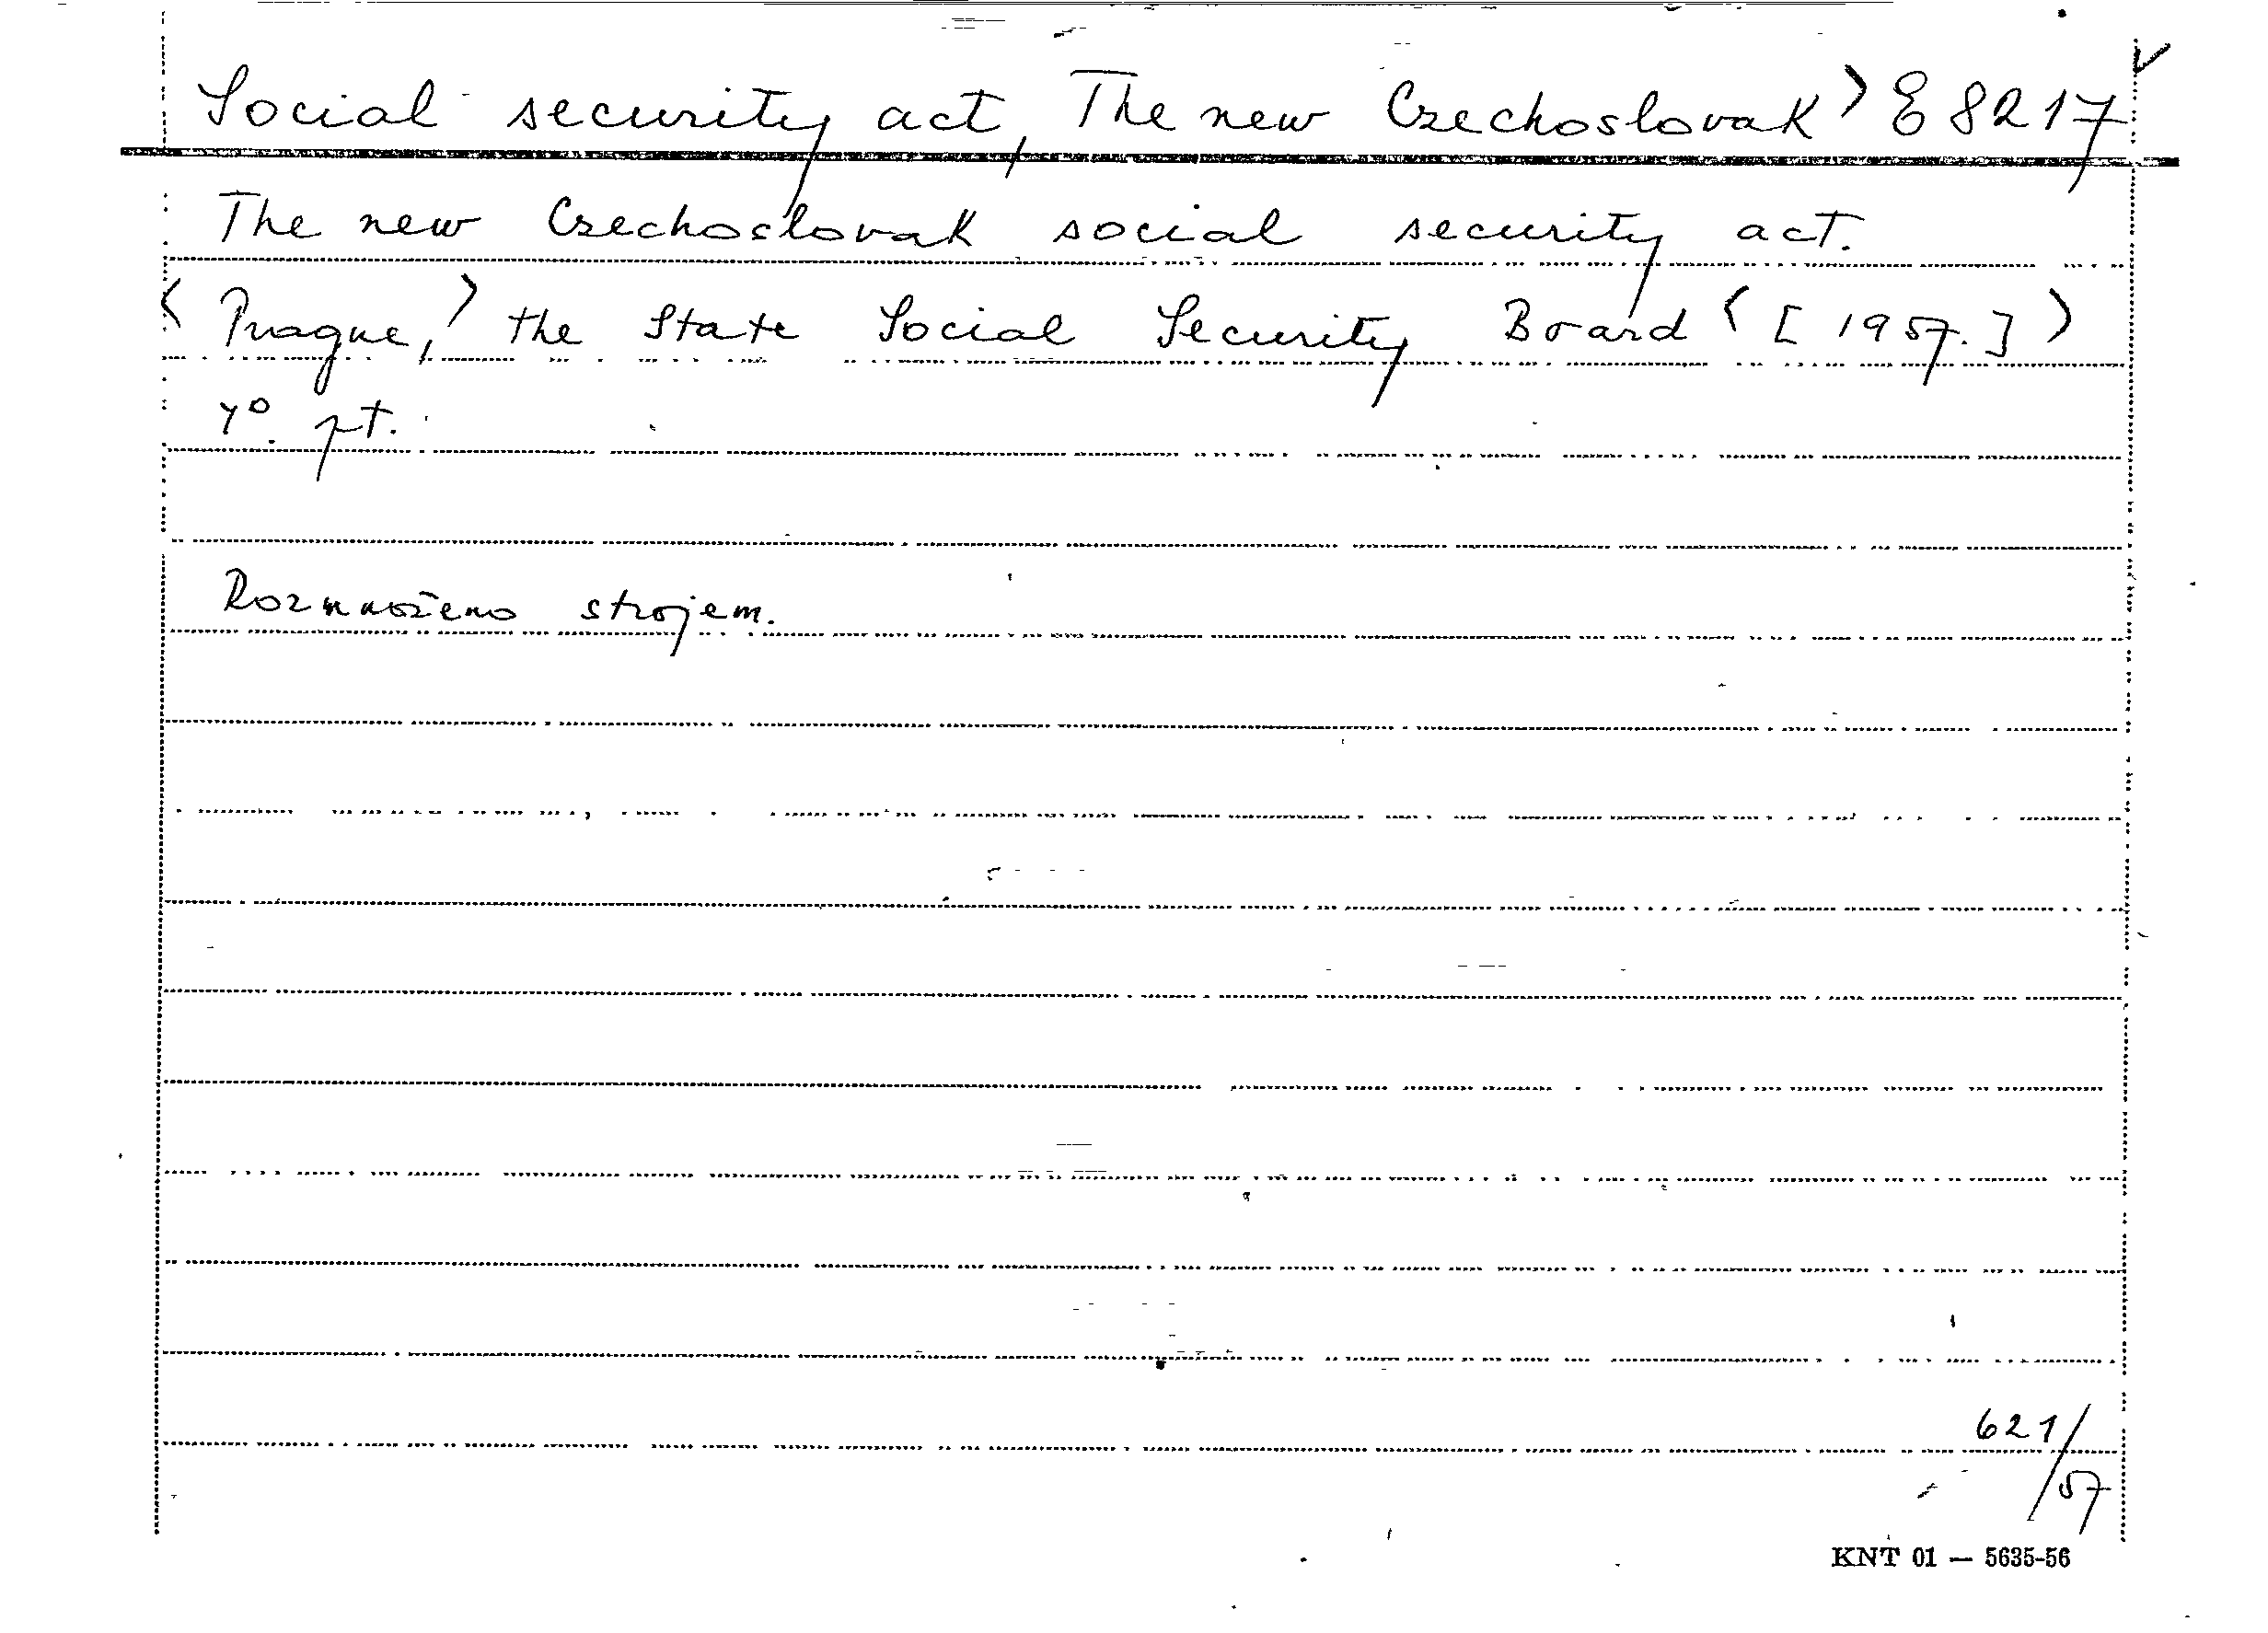 Social security act, The new Czechoslovak > E 8217
The new Czechoslovak social security act.
< Prague, > the State Social Security Board < [ 1957. ] >
4°. pt.
Rozmnoženo strojem.
621/57
KNT 01 — 5635-56